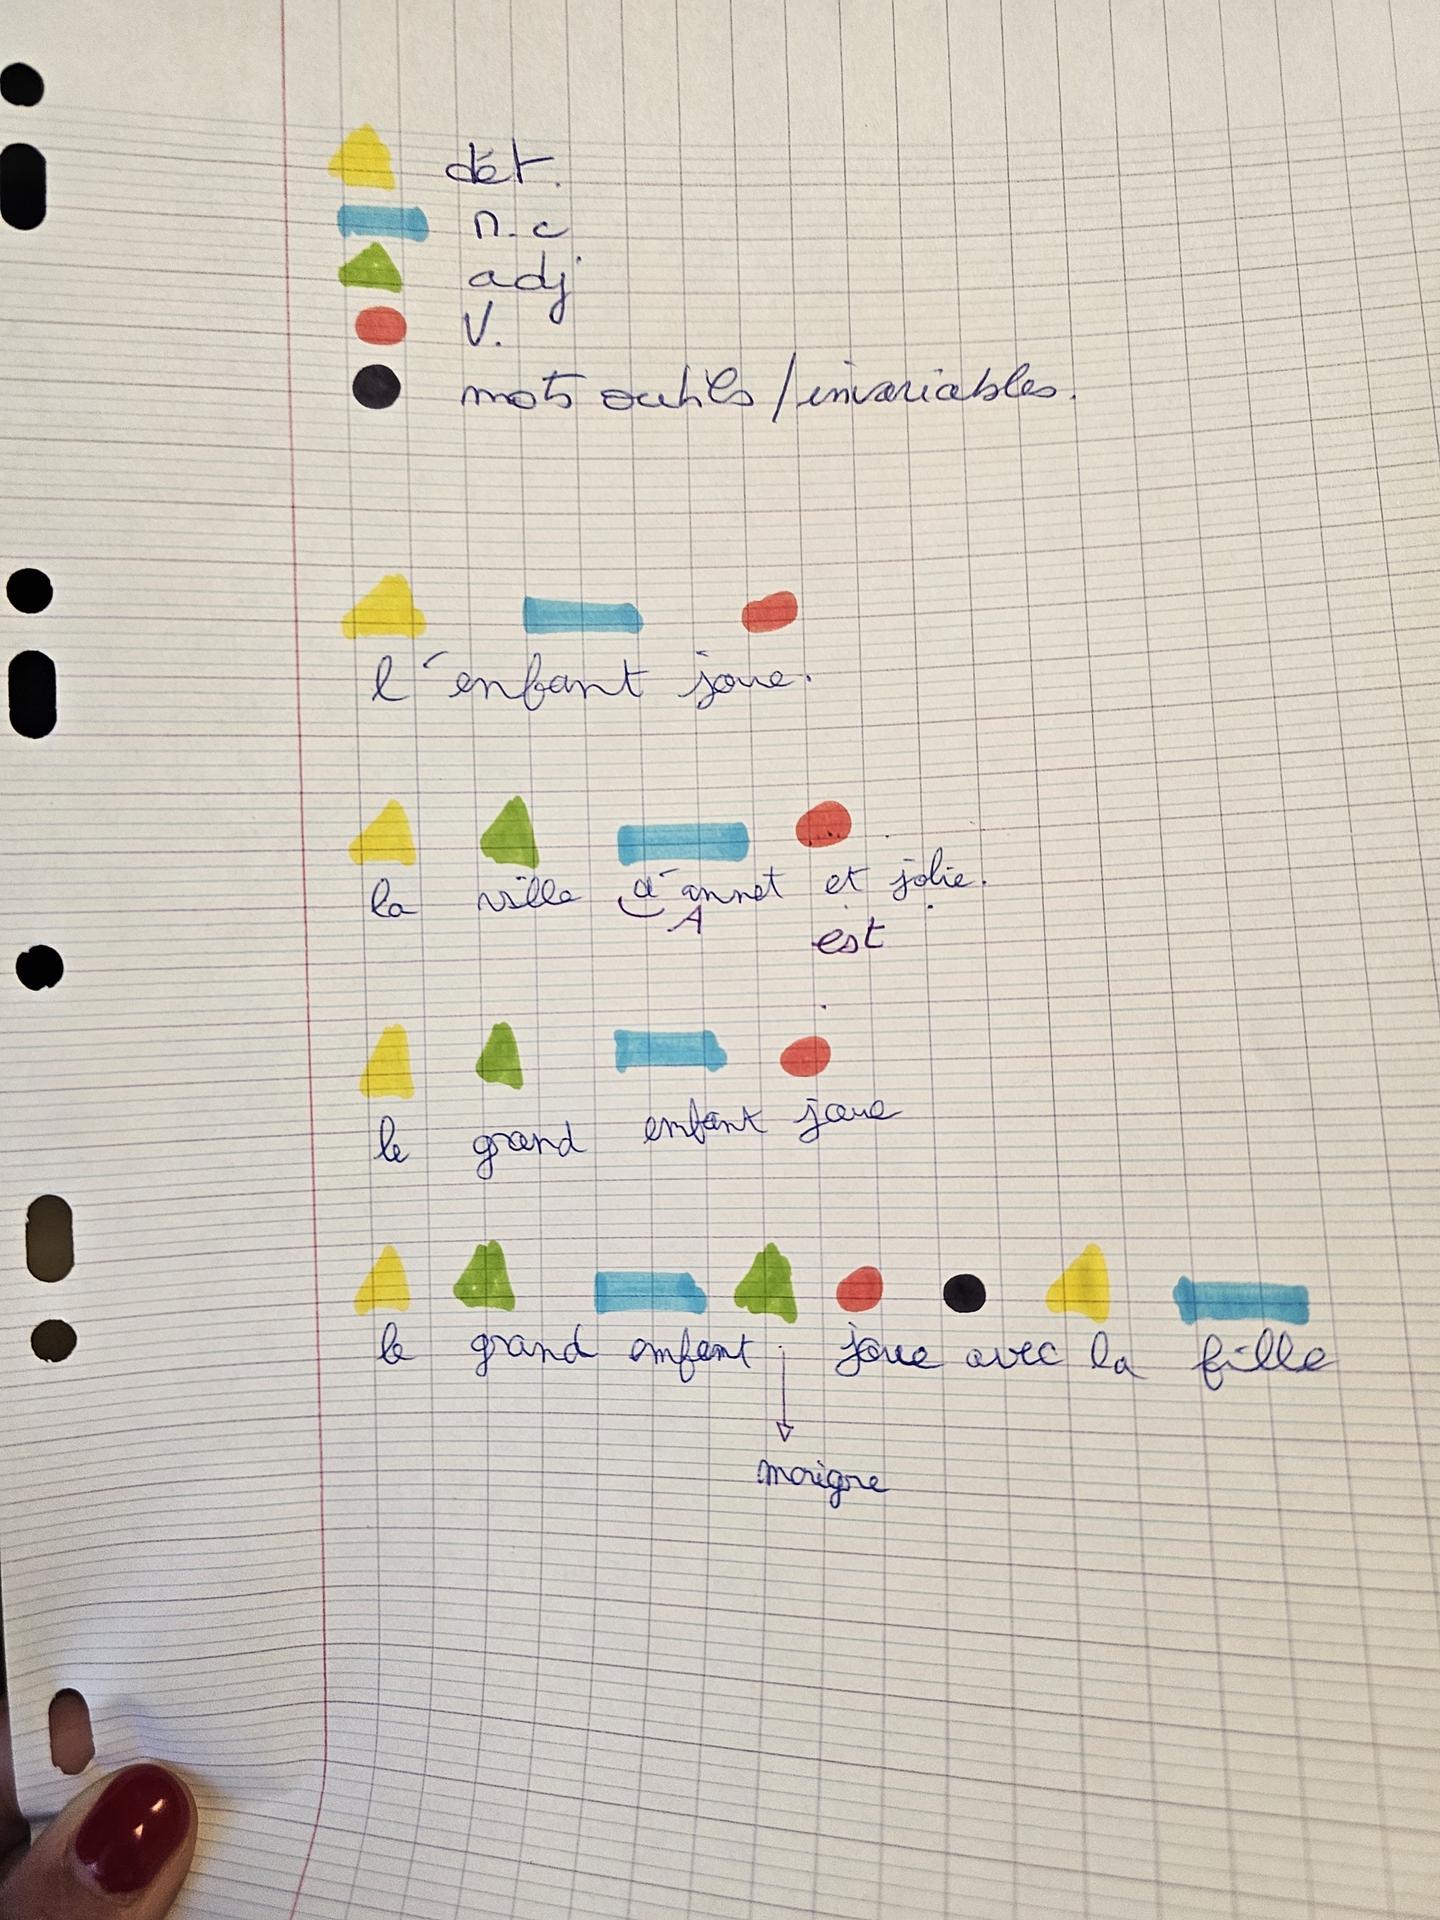 dét.
n.c
adj
V.
mots outils / invariables.
l'enfant joue.
la ville d'annet et jolie.
A
est
le grand enfant joue
le grand enfant joue avec la fille
maigre